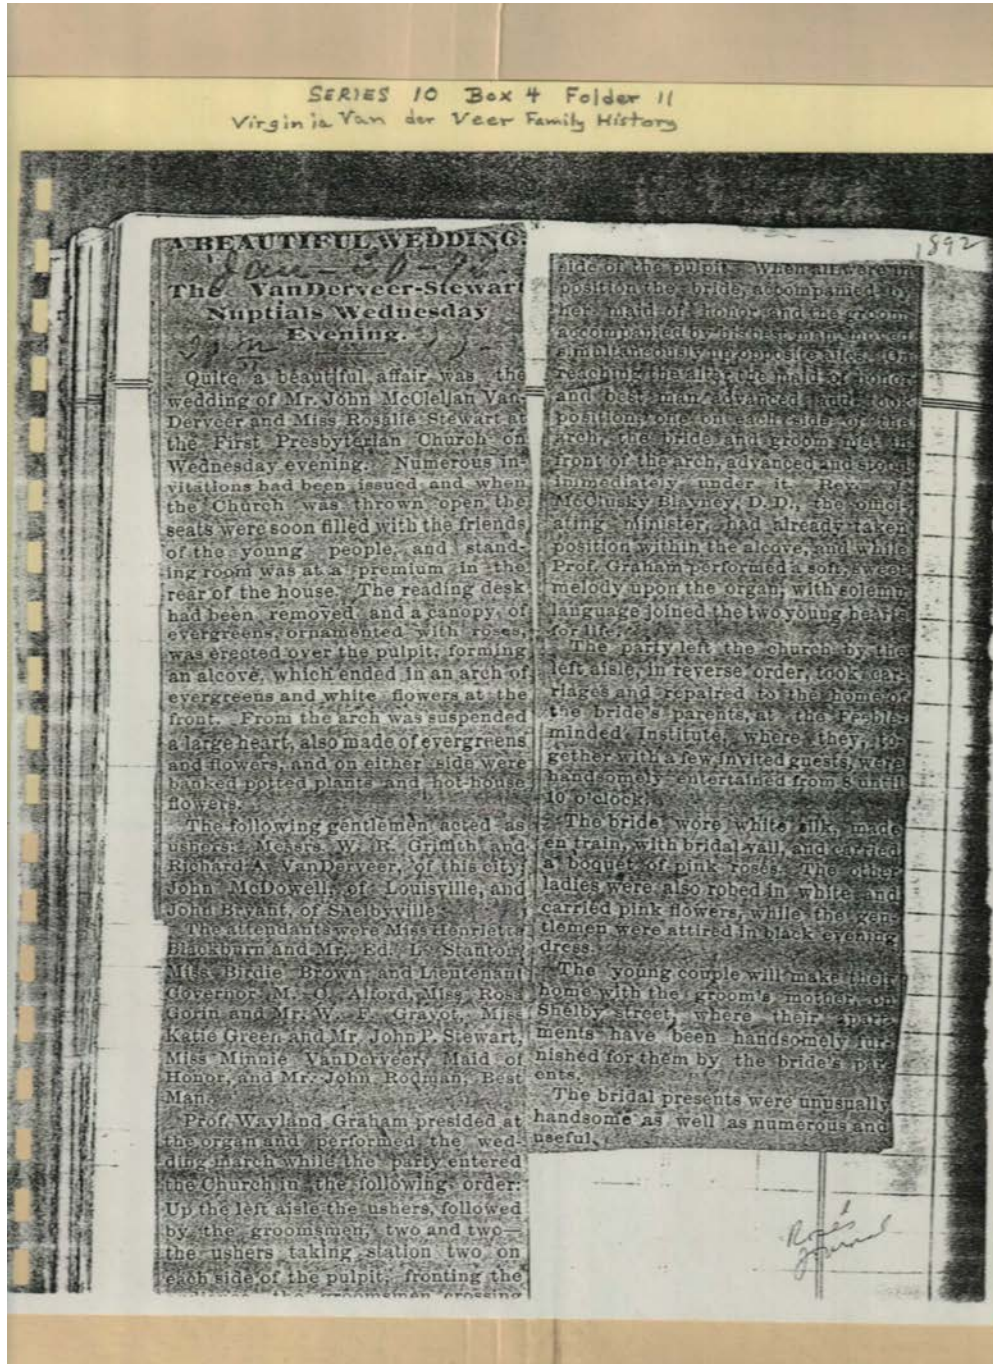 SERIES 10 Box 4 Folder 11
Virginia Van der Veer Family History
1892
A BEAUTIFUL WEDDING.
Jan-20-92
The VanDerveer-Stewart
Nuptials Wednesday
Evening.
Quite a beautiful affair was the
wedding of Mr. John McClellan Van-
Derveer and Miss Rosalie Stewart at
the First Presbyterian Church on
Wednesday evening. Numerous in-
vitations had been issued and when
the Church was thrown open the
seats were soon filled with the friends
of the young people, and stand-
ing room was at a premium in the
rear of the house. The reading desk
had been removed and a canopy of
evergreens, ornamented with roses,
was erected over the pulpit, forming
an alcove, which ended in an arch of
evergreens and white flowers at the
front. From the arch was suspended
a large heart, also made of evergreens
and flowers, and on either side were
banked potted plants and hot-house
flowers.
The following gentlemen acted as
ushers: Messrs. W. R. Griffith and
Richard A. VanDerveer, of this city;
John McDowell, of Louisville, and
John Bryant, of Shelbyville.
The attendants were Miss Henrietta
Blackburn and Mr. Ed. L. Stanton,
Miss Birdie Brown and Lieutenant
Governor M. C. Alford, Miss Rosa
Gorin and Mr. W. F. Grayot, Miss
Katie Green and Mr. John P. Stewart,
Miss Minnie VanDerveer, Maid of
Honor, and Mr. John Rodman, Best
Man.
Prof. Wayland Graham presided at
the organ and performed the wed-
ding march while the party entered
the Church in the following order:
Up the left aisle the ushers, followed
by the groomsmen, two and two—
the ushers taking station two on
each side of the pulpit, fronting the
audience, the groomsmen crossing
side of the pulpit. When all were in
position the bride, accompanied by
her maid of honor, and the groom
accompanied by his best man, moved
simultaneously up opposite aisles. On
reaching the alter the maid of honor
and best man advanced and took
position, one on each side of the
arch; the bride and groom met in
front of the arch, advanced and stood
immediately under it. Rev.
McClusky Blayney, D.D., the offici-
ating minister, had already taken
position within the alcove, and while
Prof. Graham performed a soft, sweet
melody upon the organ, with solemn
language joined the two young hearts
for life.
The party left the church by the
left aisle, in reverse order, took car-
riages and repaired to the home of
the bride's parents, at the Feeble-
minded Institute, where they, to-
gether with a few invited guests, were
handsomely entertained from 8 until
10 o'clock.
The bride wore white silk, made
en train, with bridal vail, and carried
a boquet of pink roses. The other
ladies were also robed in white and
carried pink flowers, while the gen-
tlemen were attired in black evening
dress.
The young couple will make their
home with the groom's mother, on
Shelby street, where their apart-
ments have been handsomely fur-
nished for them by the bride's par-
ents.
The bridal presents were unusually
handsome as well as numerous and
useful.
Rose's
Journal